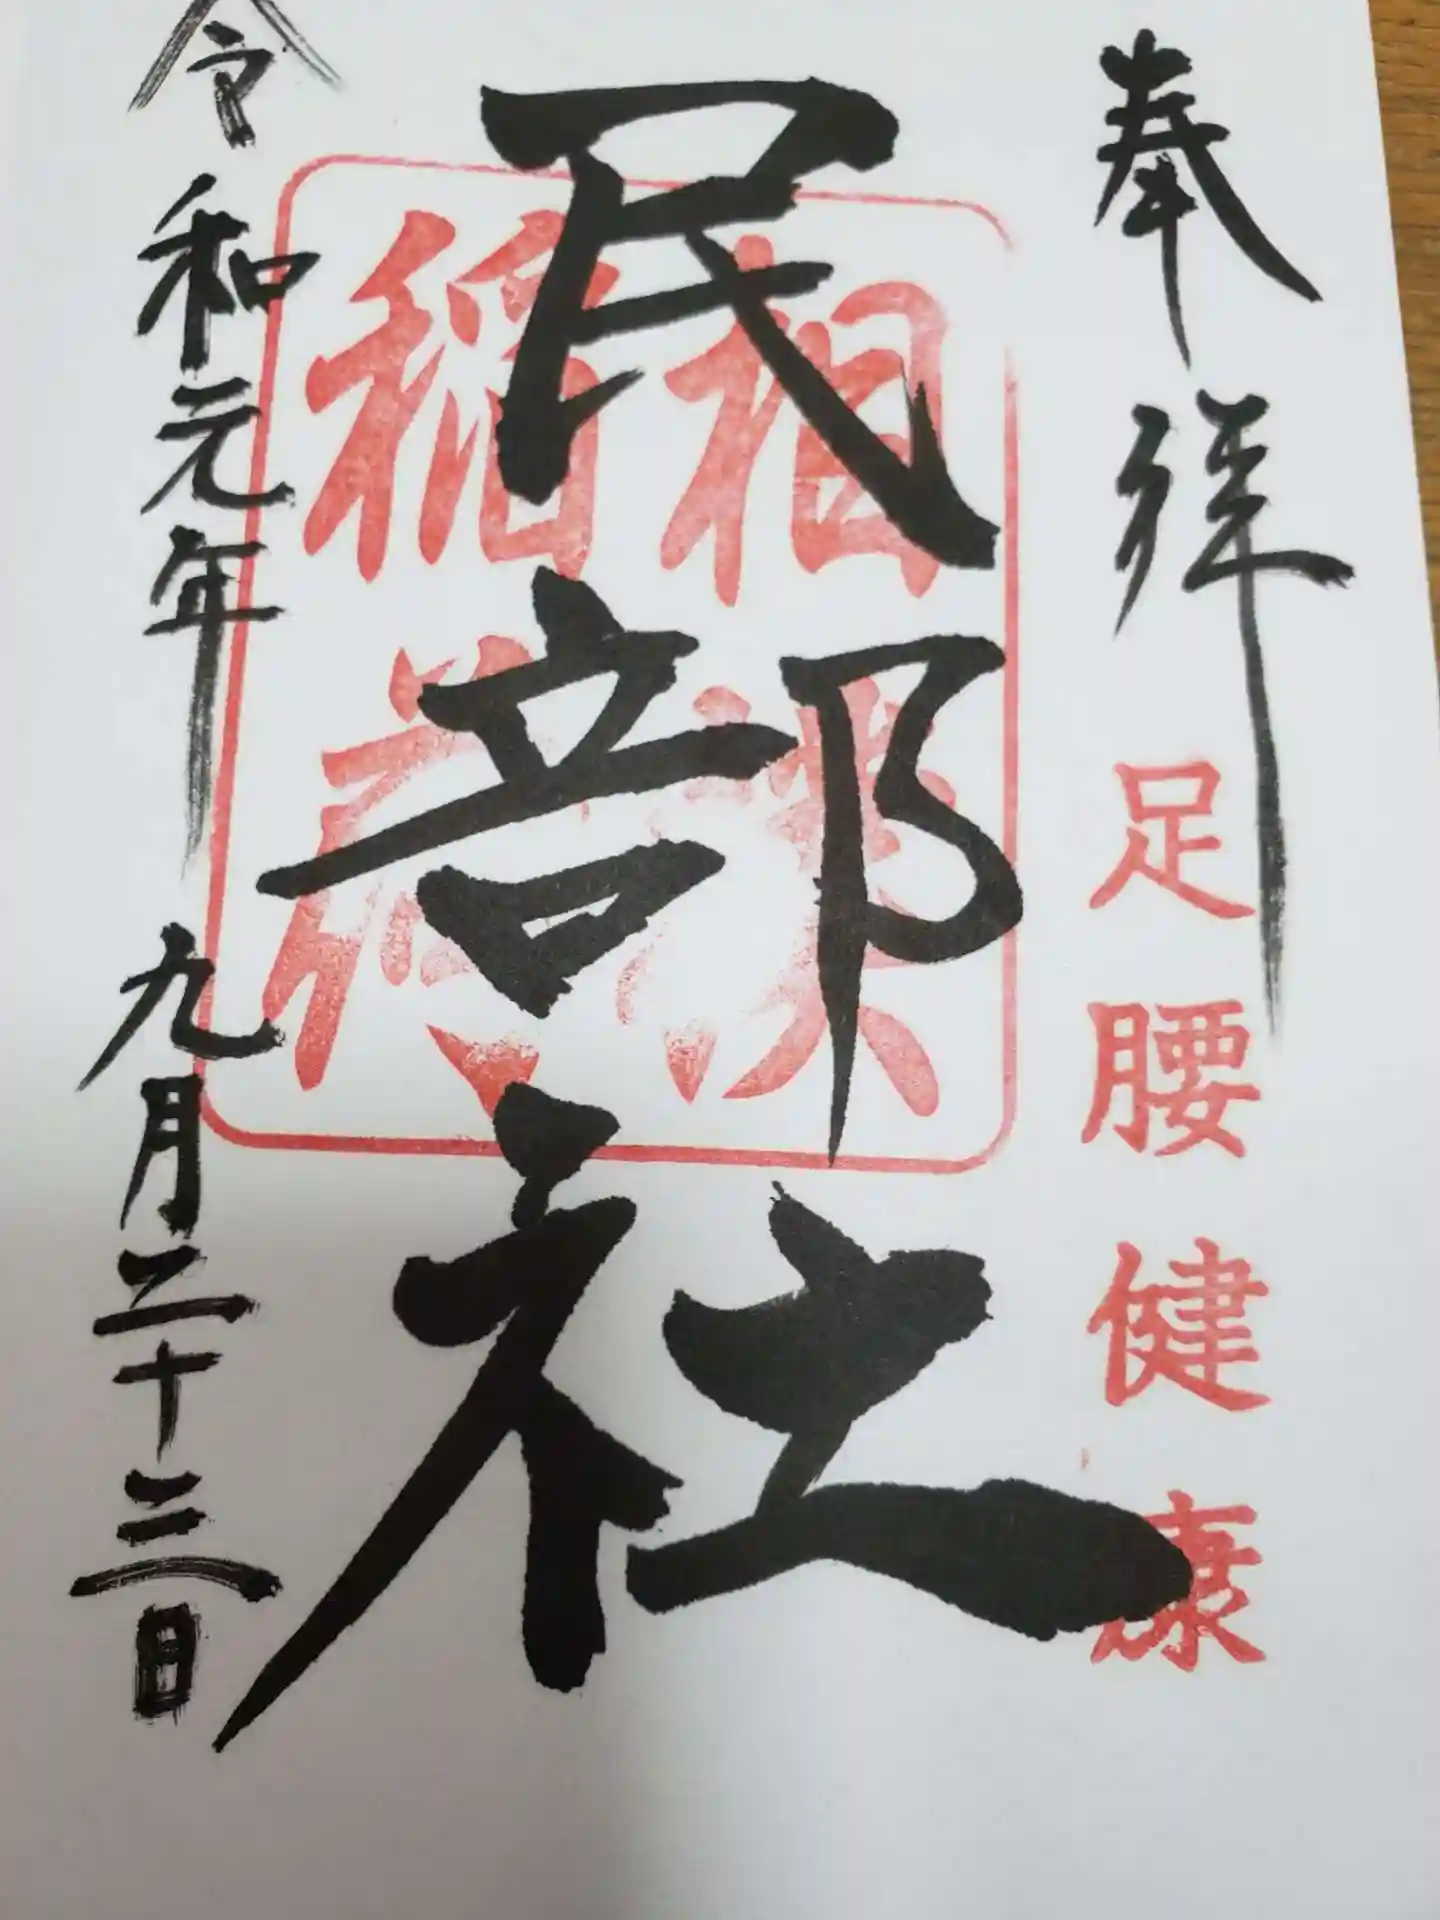 奉拝
足腰健康
民部社
相
稲
令和元年九月二十三日